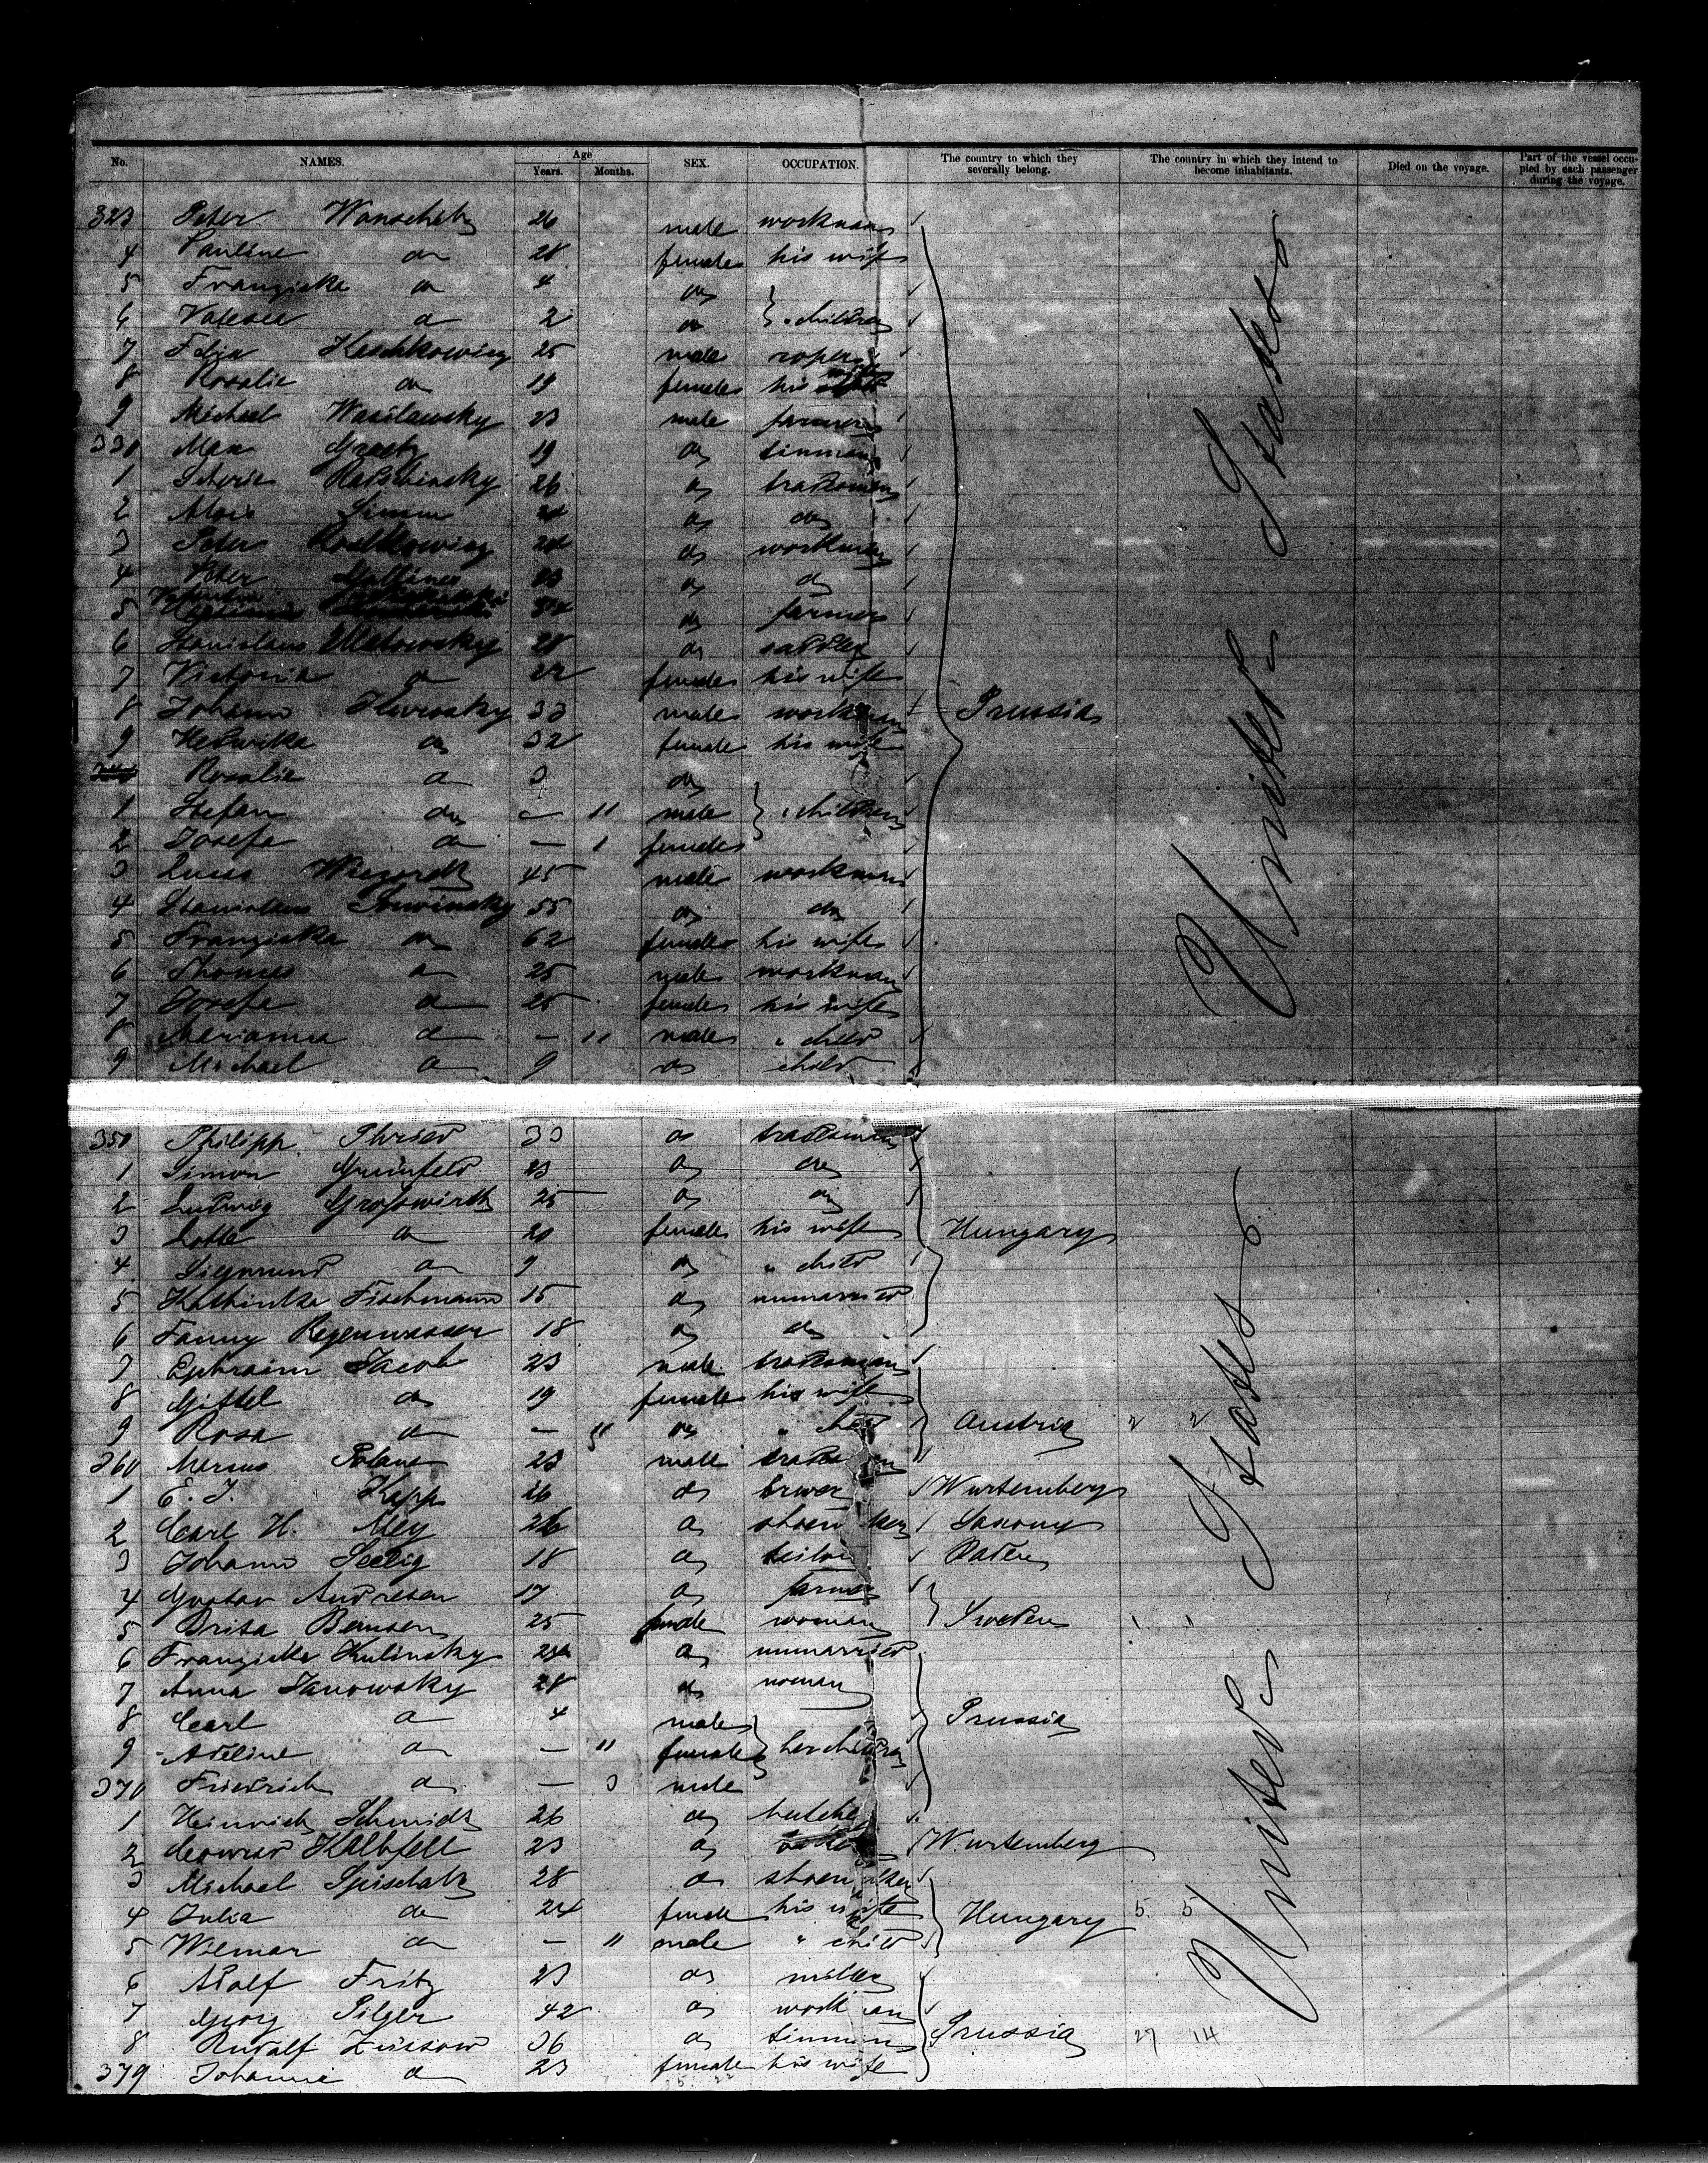 No. NAMES. Age Years. Months. SEX. OCCUPATION. The country to which they severally belong. The country in which they intend to become inhabitants. Died on the voyage. Part of the vessel occupied by each passenger during the voyage.
323 Peter Wonscheh 26 male workman
4 Pauline do 28 female his wife
5 Franziska do 4 do
6 Valeska do 2 do } " children
7 Felix 25 male roper
8 Rosalie do 19 female his wife
9 Michael Wasilawsky 23 male farmer
330 Max Graetz 19 do tinman
1 Ratschinsky 26 do tradesman
2 Alois Simon do do
3 Peter Radtkowicz 24 do workman
4 Peter do do
5 do farmer
6 Stanislaus 28 do sadler
7 Victoria do 22 female his wife
8 Johann 33 male workman Prussia United States
9 Hedwika do 32 female his wife
Rosalie do 3 do
1 Stefan do — 11 male } " children
2 Josefa do — 1 female
3 Lucas 45 male workman
4 Stanislaus 55 do do
5 Franziska do 62 female his wife
6 Thomas do 25 male workman
7 Josefa do 25 female his wife
8 Marianna do — 11 male " child
9 Michael do 9 do child
350 Philipp 33 do tradesman
1 Simon Grünfeld 23 do do
2 Ludwig Grosswirth 25 do do
3 Lotte do 20 female his wife Hungary
4 Siegmund do 9 do " child
5 Kathinka Fischmann 15 do unmarried
6 Fanny Regenwasser 18 do do
7 Ephraim Jacob 23 male tradesman
8 Gittel do 19 female his wife
9 Rosa do — 11 do " child Austria 2 2
360 Marcus 23 male tradesman
1 E. J. Kapp 26 do brewer Wurtemberg United States
2 Carl H. Mey 26 do shoemaker Saxony
3 Johann Seelig 18 do Baden
4 Gustav Andresen 17 do farmer
5 Brita Bensen 25 female woman Sweden 1 1
6 Franziska Kulinsky 24 do unmarried
7 Anna Janowsky 28 do woman
8 Carl do 4 male Prussia
9 Adeline do — 11 female } her children
370 Friedrich do — 3 male
1 Heinrich Schmidt 26 do butcher
2 Conrad Kalbfell 23 do Wurtemberg
3 Michael 28 do shoemaker
4 Julia do 24 female his wife Hungary 5 5
5 Wilmar do — 11 male " child
6 Adolf Fritz 23 do miller
7 Georg Pilger 42 do workman
8 Rudolf Züssow 36 do tinman Prussia 27 14
379 Johanne do 23 female his wife